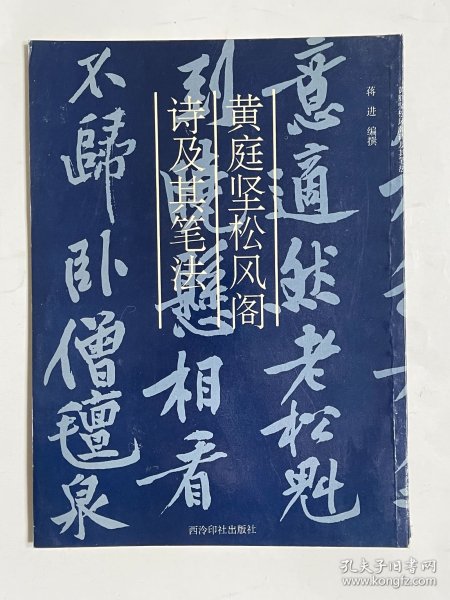 蒋进 编撰
黄庭坚松风阁
诗及其笔法
意適然老松魁
到曉懸相看
不歸卧僧氊泉
西泠印社出版社
孔夫子旧书网
www.kongfz.com